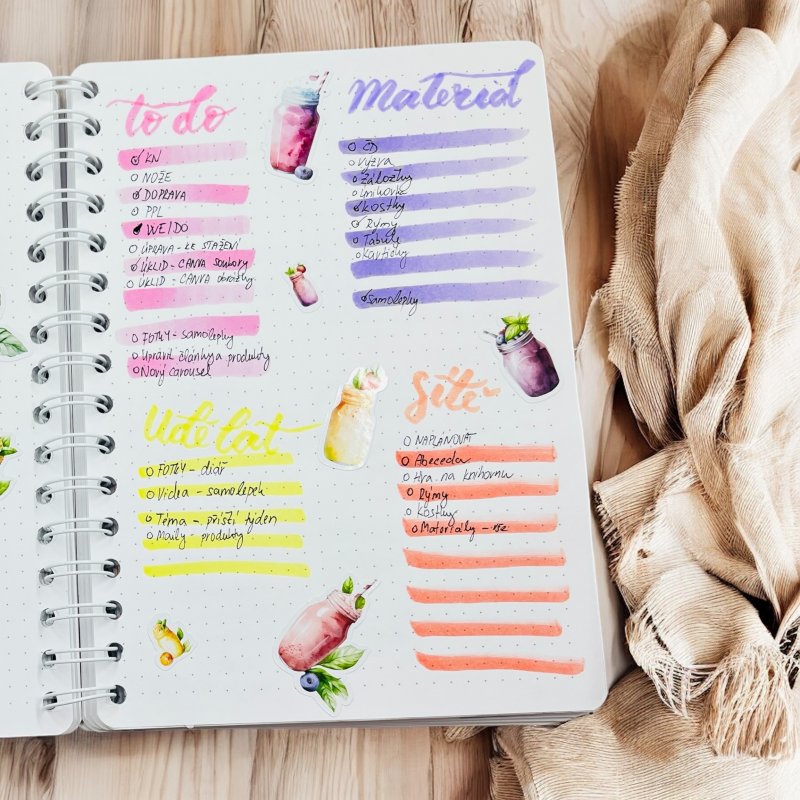 to do
KN
NOŽE
DOPRAVA
PPL
WEIDO
ÚPRAVA - KE STAŽENÍ
ÚKLID - CANVA soubory
ÚKLID - CANVA obrázky
FOTKY - samolepky
Upravit články a produkty
Nový carousel
Material
ČD
Výzva
Záložky
Knihovna
Kostky
Rýmy
Tabule
Kartičky
Samolepky
Udělat
FOTKY - diář
Videa - samolepek
Téma - příští týden
Maily - produkty
Sítě
NAPLÁNOVAT
Abeceda
Hra na knihovnu
Rýmy
Kostky
Materiály - vše